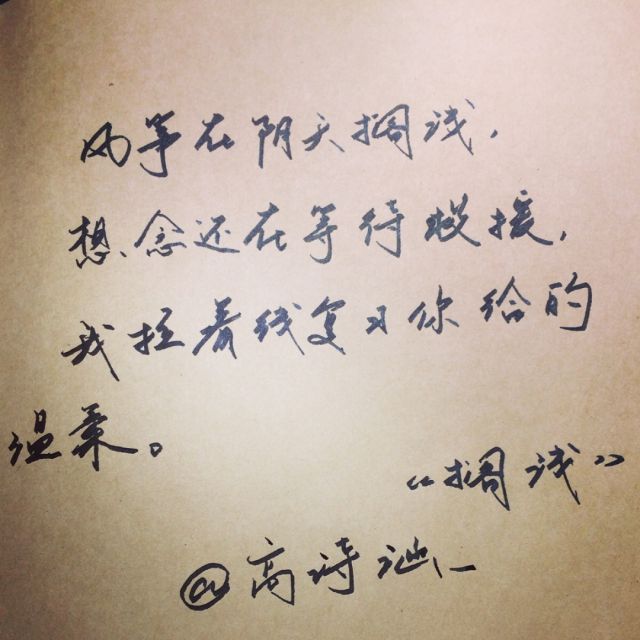 风筝在阴天搁浅,
想念还在等待救援,
我拉着线复习你给的
温柔。
“搁浅”
@高诗